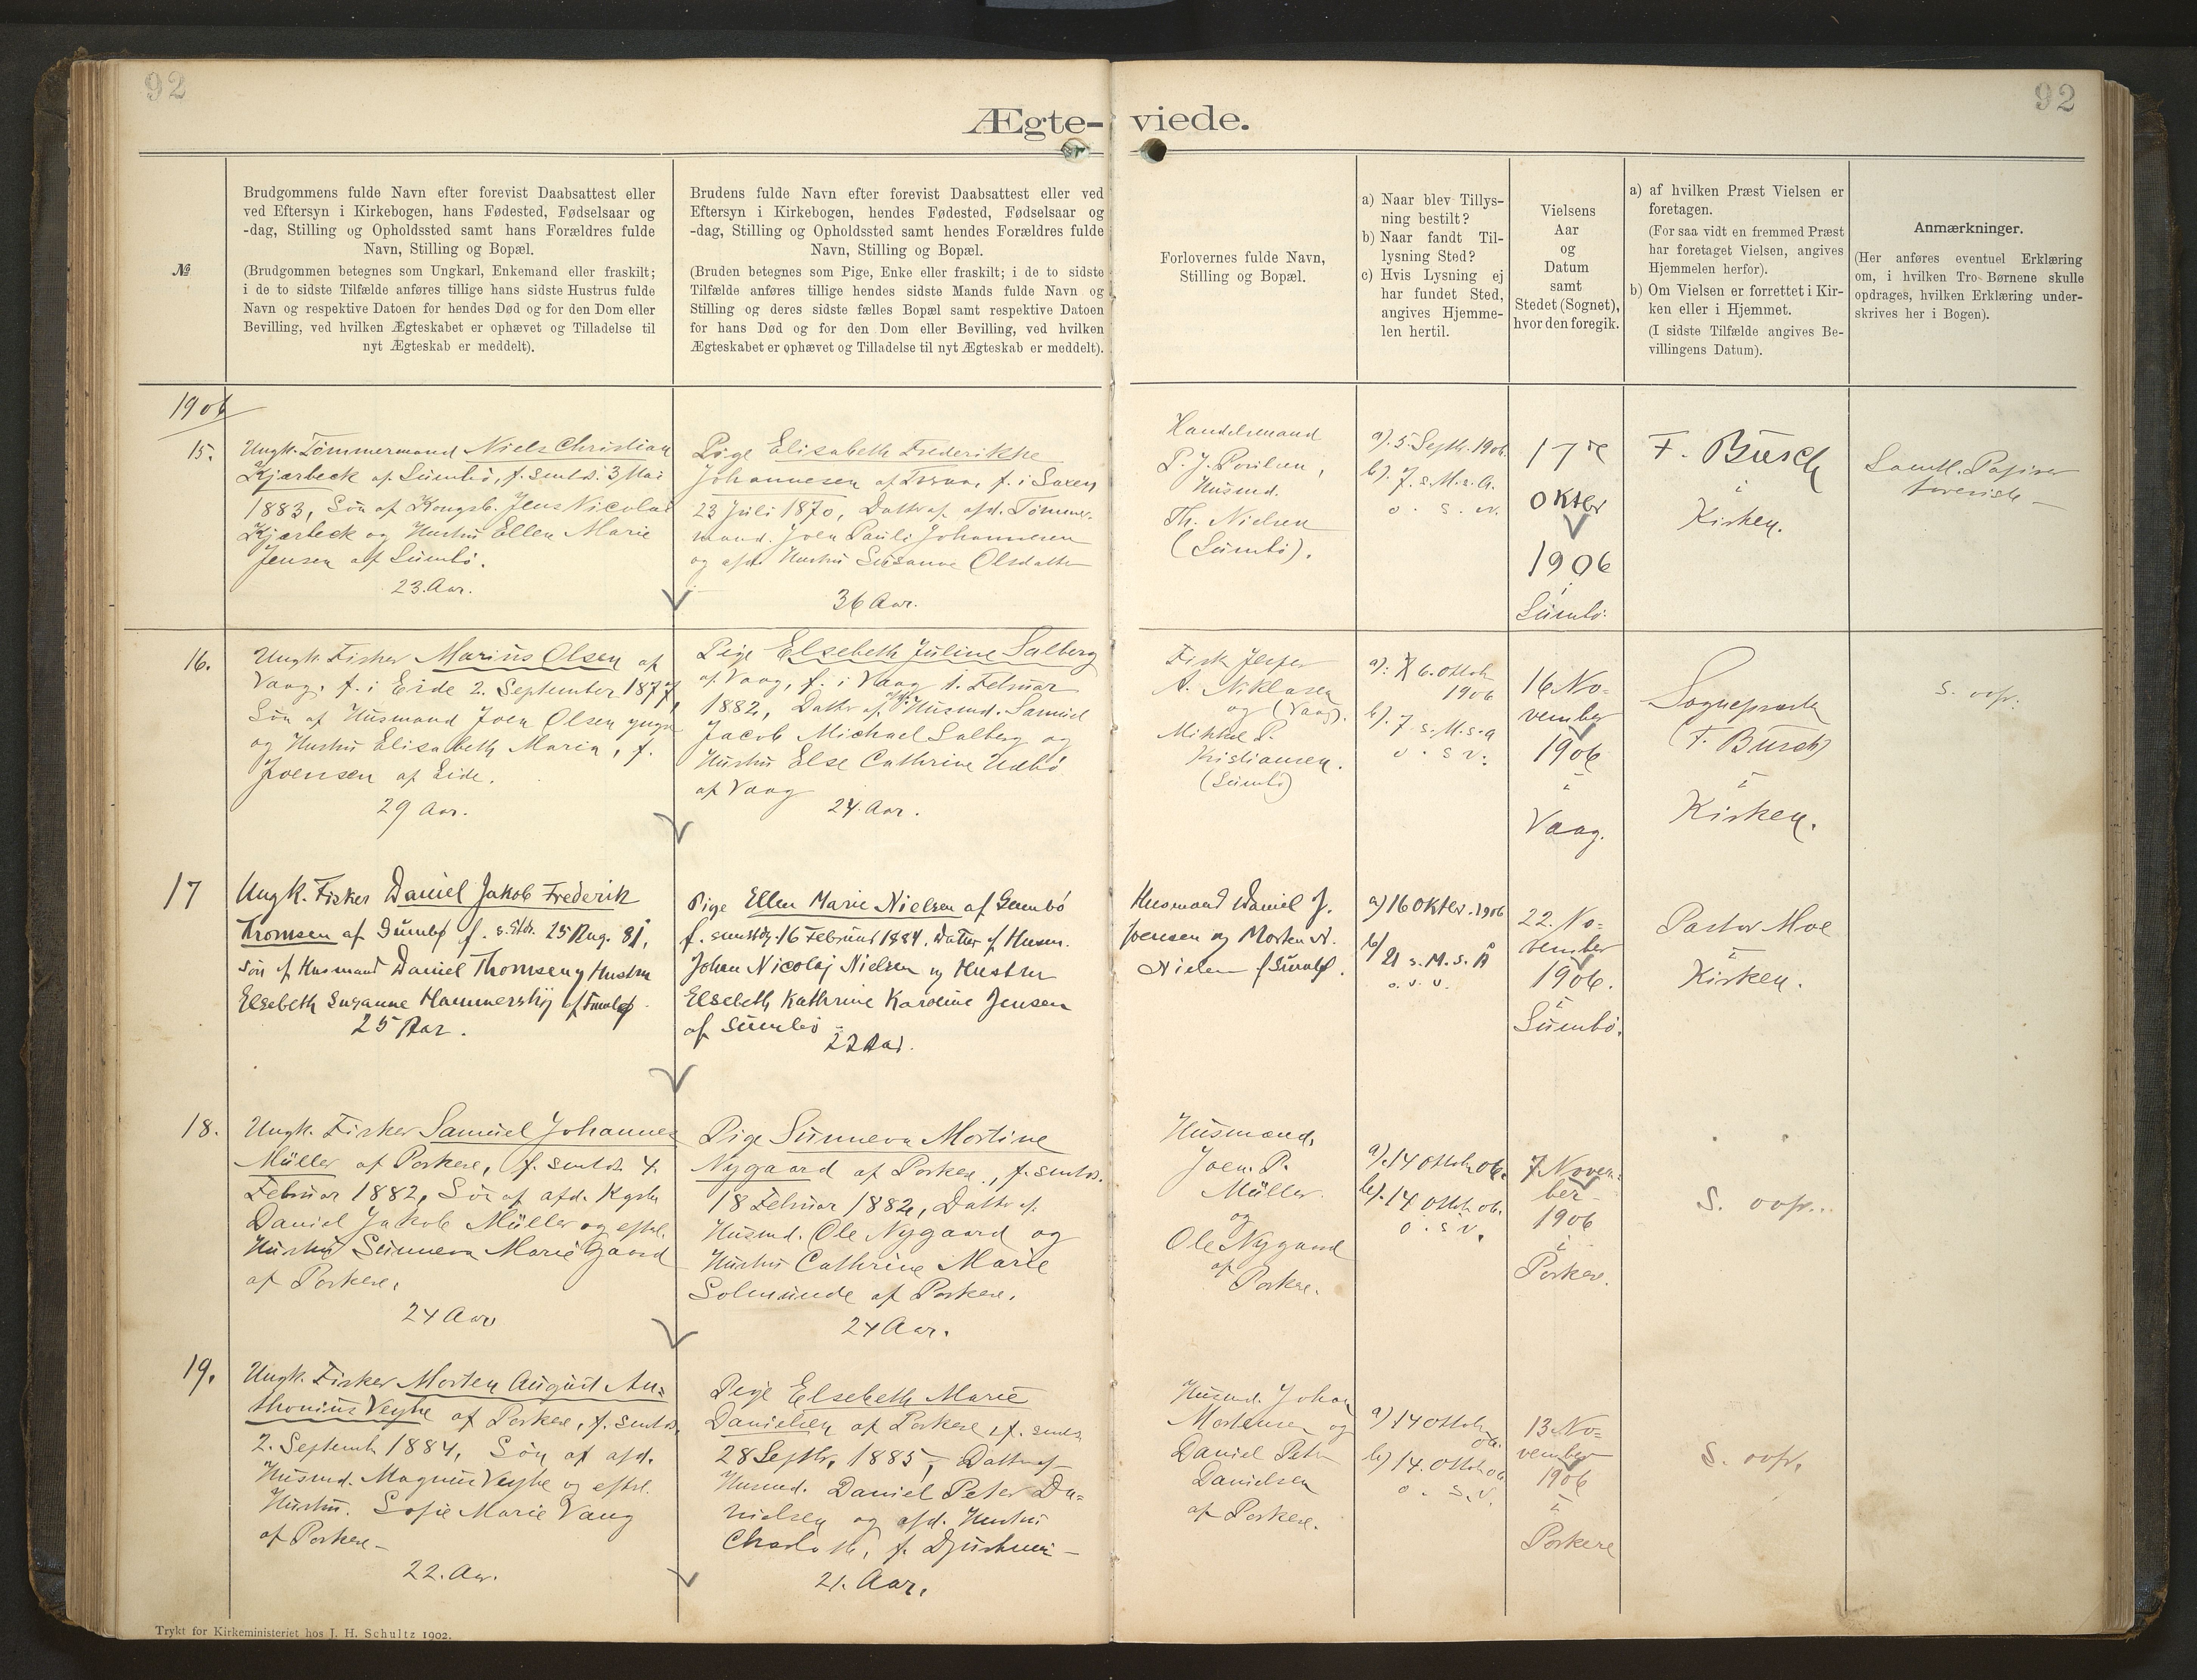 92
92
Ægte-viede.
№
Brudgommens fulde Navn efter forevist Daabsattest eller
ved Eftersyn i Kirkebogen, hans Fødested, Fødselsaar og
-dag, Stilling og Opholdssted samt hans Forældres fulde
Navn, Stilling og Bopæl.
(Brudgommen betegnes som Ungkarl, Enkemand eller fraskilt;
i de to sidste Tilfælde anføres tillige hans sidste Hustrus fulde
Navn og respektive Datoen for hendes Død og for den Dom eller
Bevilling, ved hvilken Ægteskabet er ophævet og Tilladelse til
nyt Ægteskab er meddelt).
Brudens fulde Navn efter forevist Daabsattest eller ved
Eftersyn i Kirkebogen, hendes Fødested, Fødselsaar og
-dag, Stilling og Opholdssted samt hendes Forældres fulde
Navn, Stilling og Bopæl.
(Bruden betegnes som Pige, Enke eller fraskilt; i de to sidste
Tilfælde anføres tillige hendes sidste Mands fulde Navn og
Stilling og deres sidste fælles Bopæl samt respektive Datoen
for hans Død og for den Dom eller Bevilling, ved hvilken
Ægteskabet er ophævet og Tilladelse til nyt Ægteskab er meddelt).
Forlovernes fulde Navn,
Stilling og Bopæl.
a) Naar blev Tillys-
ning bestilt?
b) Naar fandt Til-
lysning Sted?
c) Hvis Lysning ej
har fundet Sted,
angives Hjemme-
len hertil.
Vielsens
Aar
og
Datum
samt
Stedet (Sognet),
hvor den foregik.
a) af hvilken Præst Vielsen er
foretagen.
(For saa vidt en fremmed Præst
har foretaget Vielsen, angives
Hjemmelen herfor).
b) Om Vielsen er forrettet i Kir-
ken eller i Hjemmet.
(I sidste Tilfælde angives Be-
villingens Datum).
Anmærkninger.
(Her anføres eventuel Erklæring
om, i hvilken Tro Børnene skulle
opdrages, hvilken Erklæring under-
skrives her i Bogen).
1906
15.
Ungk. Tømmermand Niels Christian
Kjærbeck af Sumbö, f. smtds. 3 Mai
1883, Søn af Kongsb. Jens Nicolai
Kjærbeck og Hustru Ellen Marie
Jensen af Sumbö.
23. Aar.
Pige Elisabeth Frederikke
Johannesen af , f. i Saxen
23 Juli 1870, Datter af afd. Tømmer-
mand. Joen Pauli Johannesen
og afd. Hustru Susanne Olsdatter
36 Aar.
Handelsmand
P. J. Poulsen,
Husmd.
Th. Nielsen
(Sumbö).
a). 5 Septbr. 1906.
b). 7. s. M. s. A.
o. s. v.
17de
Oktbr
1906
i
Sumbö.
F. Busch
i
Kirken.
Samtl. Papirer
foreviste –
16.
Ungk. Fisker Marius Olsen af
Vaag, f. i Eide 2. September 1877,
Søn af Husmand Joen Olsen yngr
og Hustru Elisabeth Maria, f.
Joensen af Eide.
29 Aar.
Pige Elsebeth Juline Salberg
af Vaag, f. i Vaag 1. Februar
1882, Datter af afd. Husmd. Samuel
Jacob Michael Salberg og
Hustru Else Cathrine
af Vaag
24. Aar.
Fisk Jesper
A. Niklasen
og (Vaag).
Mikkel P.
Kristiansen.
(Sumbö)
a): 6. Oktbr
1906
b). 7 s. M. s. A
o. s. v.
16 No-
vember
1906
i
Vaag.
Sognepræsten
(F. Busch)
i
Kirken.
s. ovfr.
17
Ungk. Fisker Daniel Jakob Frederik
Thomsen af Sumbø f. s. Stds. 25 Aug. 81,
Søn af Husmand Daniel Thomsen og Hustru
Elsebeth Susanne Hammershøj af Sumbø.
25 Aar.
Pige Ellen Marie Nielsen af Sumbö
f. smstdg. 16 Februar 1884. Datter af Husm.
Johan Nicolaj Nielsen og Hustru
Elsebeth Kathrine Karoline Jensen
af Sumbö
22 Aar.
Husmand Daniel J.
Joensen og Morten N.
Nielsen af Sumbø.
a) 16 Oktbr. 1906
b) 21 s. M. s. A
o. s. v.
22. No-
vember
1906.
i
Sumbö.
Pastor Moe
i
Kirken.
18.
Ungk. Fisker Samuel Johannes
Müller af Porkere, f. smtds. 4.
Februar 1882, Søn af afd. Kgsb.
Daniel Jakob Müller og eftel.
Hustru Sunneva Marie Gaard
af Porkere.
24 Aar
Pige Sunneva Mortine
Nygaard af Porkere, f. smtds.
18 Februar 1882, Datter af.
Husmd. Ole Nygaard og
Hustru Cathrine Marie
Solmunde af Porkere.
24 Aar.
Husmænd.
Joen P.
Müller.
og
Ole Nygaard
af
Porkere.
a). 14 Oktbr 06.
b). 14 Oktbr 06.
o. s. v.
7. Novem-
ber
1906
i
Porkere.
S. ovfr..
19.
Ungk. Fisker Morten August An-
thonius Veyhe af Porkere, f. smtds.
2. Septemb. 1884, Søn af afd.
Husmd. Magnus Veyhe og eftel.
Hustru. Sofie Marie Vang
af Porkere –
22. Aar.
Pige Elsebeth Marie
Danielsen af Porkere, f. smtds
28 Septbr. 1885, Datter af
Husmd. Daniel Peter Da-
nielsen og afd. Hustru
Charlotte, f.
21. Aar.
Husmd. Johan
Mortensen og
Daniel Peter
Danielsen
af Porkere.
a) 14 Oktob.
06.
b) 14. Oktob 06
o. s. v.
13. No-
vember
1906
i
Porkere
S. ovfr.
Trykt for Kirkeministeriet hos J. H. Schultz 1902.